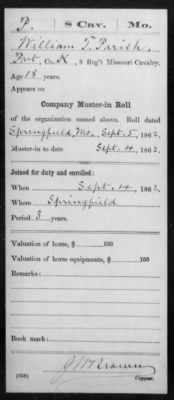 P. 8 Cav. Mo.
William T. Parish
Pvt, Co. K, 8 Reg't Missouri Cavalry.
Age 18 years.
Appears on
Company Muster-in Roll
of the organization named above. Roll dated
Springfield, Mo, Sept. 5, 1862
Muster-in to date Sept. 4, 1862.
Joined for duty and enrolled:
When Sept. 4, 1862
Where Springfield
Period 3 years.
Valuation of horse, $ 100
Valuation of horse equipments, $ 100
Remarks:
Book mark:
J W Brown
(356) Copyist.